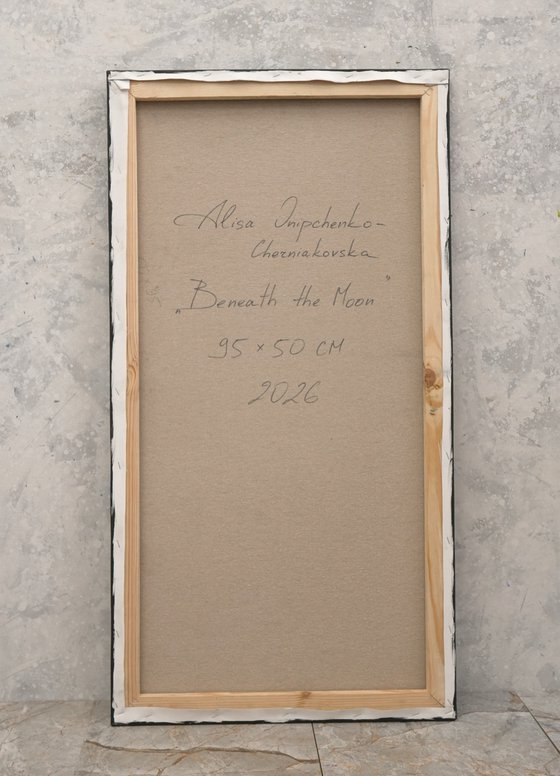 Alisa Onipchenko-
Cherniakovska
„Beneath the Moon”
95 × 50 CM
2026